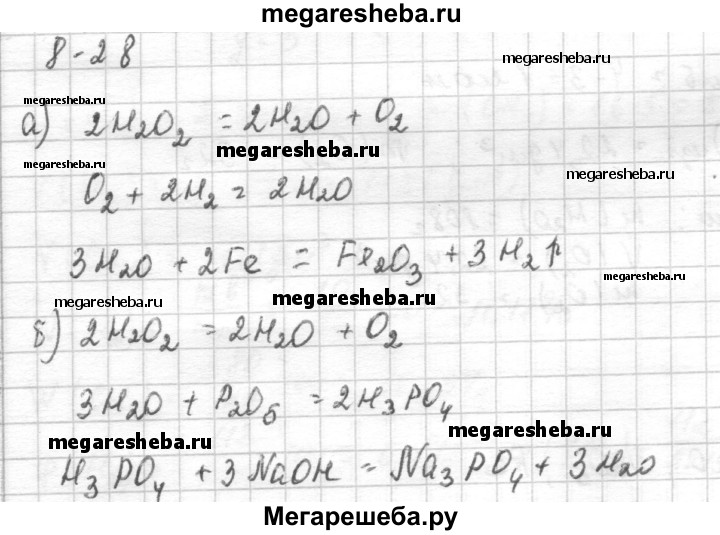 megaresheba.ru
8-28
megaresheba.ru
megaresheba.ru
а) 2H2O2 = 2H2O + O2
megaresheba.ru
megaresheba.ru
megaresheba.ru
O2 + 2H2 = 2H2O
3H2O + 2Fe = Fe2O3 + 3H2↑
megaresheba.ru
megaresheba.ru
megaresheba.ru
б) 2H2O2 = 2H2O + O2
3H2O + P2O5 = 2H3PO4
megaresheba.ru
megaresheba.ru
H3PO4 + 3NaOH = Na3PO4 + 3H2O
Мегарешеба.ру